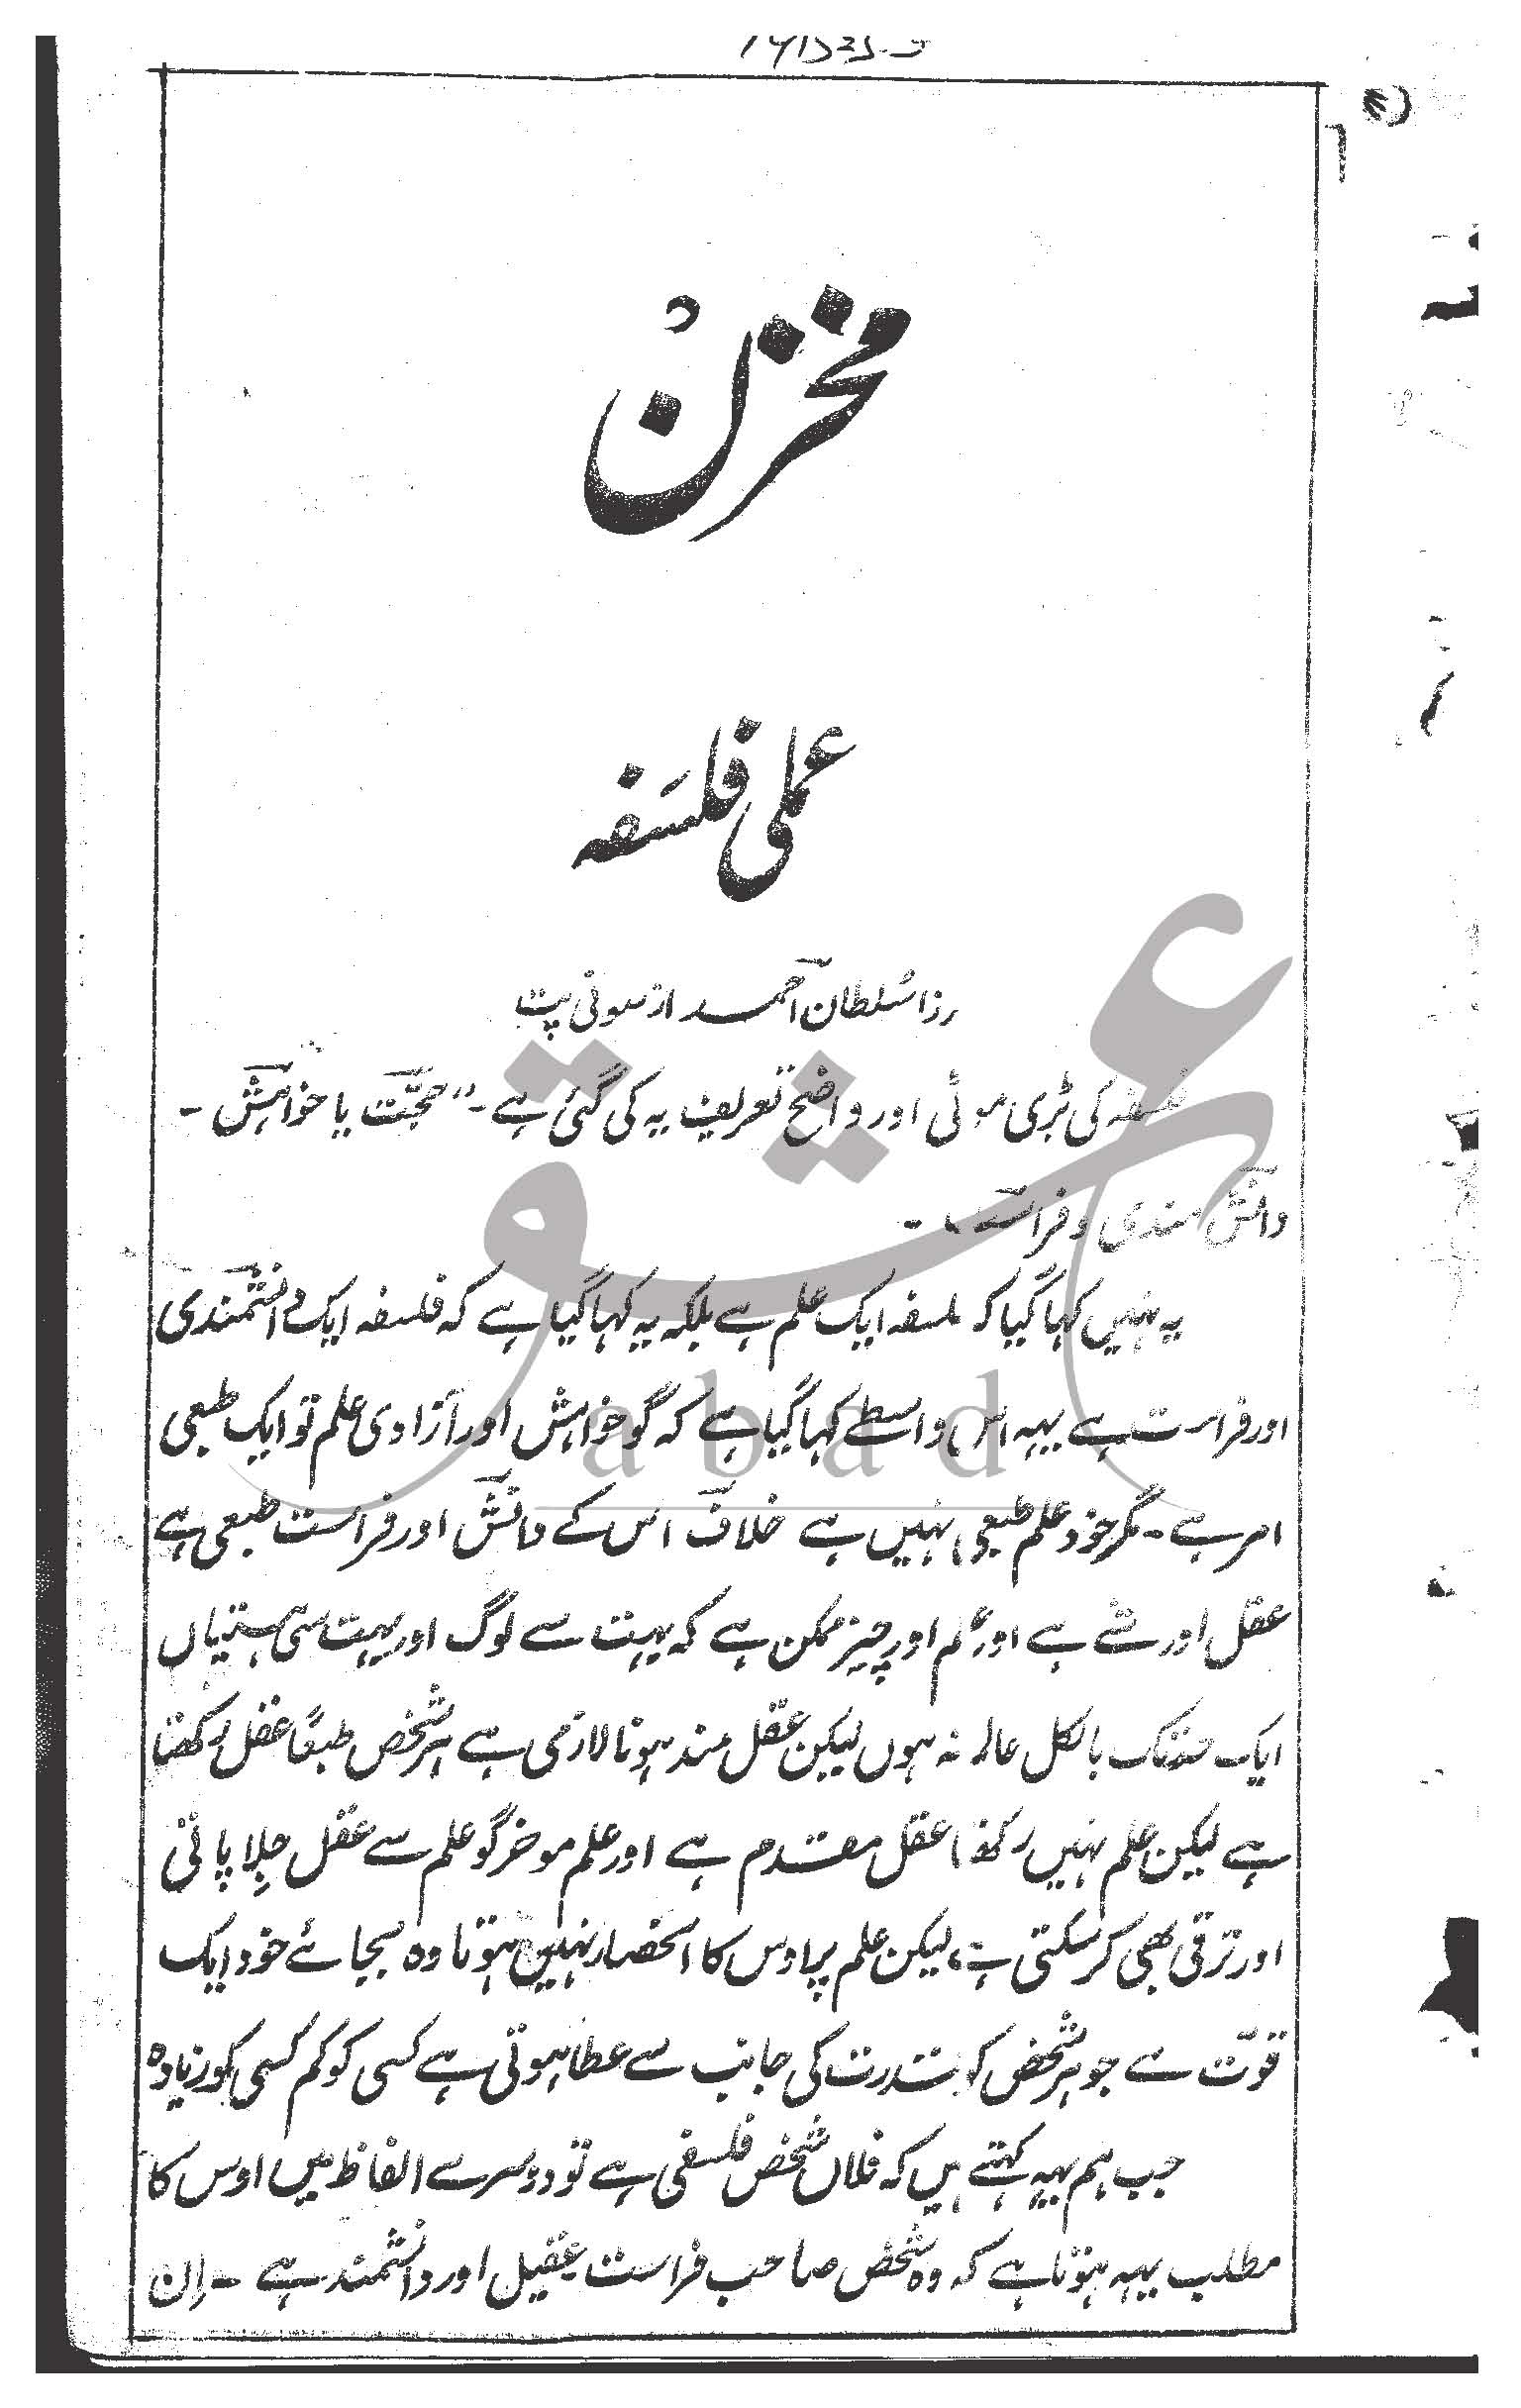 مخزن
عملی فلسفہ
رزا سُلطان احمد از سونی پت
فلسفہ کی بڑی موٹی اور واضح تعریف یہ کی گئی ہے۔ "محبّت یا خواہش ۔
دانش مندی و فراست ۔
یہ نہیں کہا گیا کہ فلسفہ ایک علم ہے بلکہ یہ کہا گیا ہے کہ فلسفہ ایک دانشمندی
اور فراست ہے یہہ اس واسطے کہا گیا ہے کہ گو خواہش اور آزادی علم تو ایک طبعی
امر ہے ۔ مگر خود علم طبعی نہیں ہے خلاف اس کے دانش اور فراست طبعی ہے
عقل اور شے ہے اور علم اور چیز ممکن ہے کہ بہت سے لوگ اور بہت سی ہستیاں
ایک حد تک بالکل عالم نہ ہوں لیکن عقل مند ہونا لازمی ہے ہر شخص طبعًا عقل رکھتا
ہے لیکن علم نہیں رکھتا عقل مقدم ہے اور علم موخر گو علم سے عقل جِلا پاتی
اور ترقی بھی کر سکتی ہے، لیکن علم پر اوس کا انحصار نہیں ہوتا وہ بجائے خود ایک
قوّت ہے جو ہر شخص کو قدرت کی جانب سے عطا ہوتی ہے کسی کو کم کسی کو زیادہ
جب ہم یہہ کہتے ہیں کہ فلاں شخص فلسفی ہے تو دوسرے الفاظ میں اوس کا
مطلب یہہ ہوتا ہے کہ وہ شخص صاحب فراست عقیل اور دانشمند ہے ۔ اِن
عشق
abad